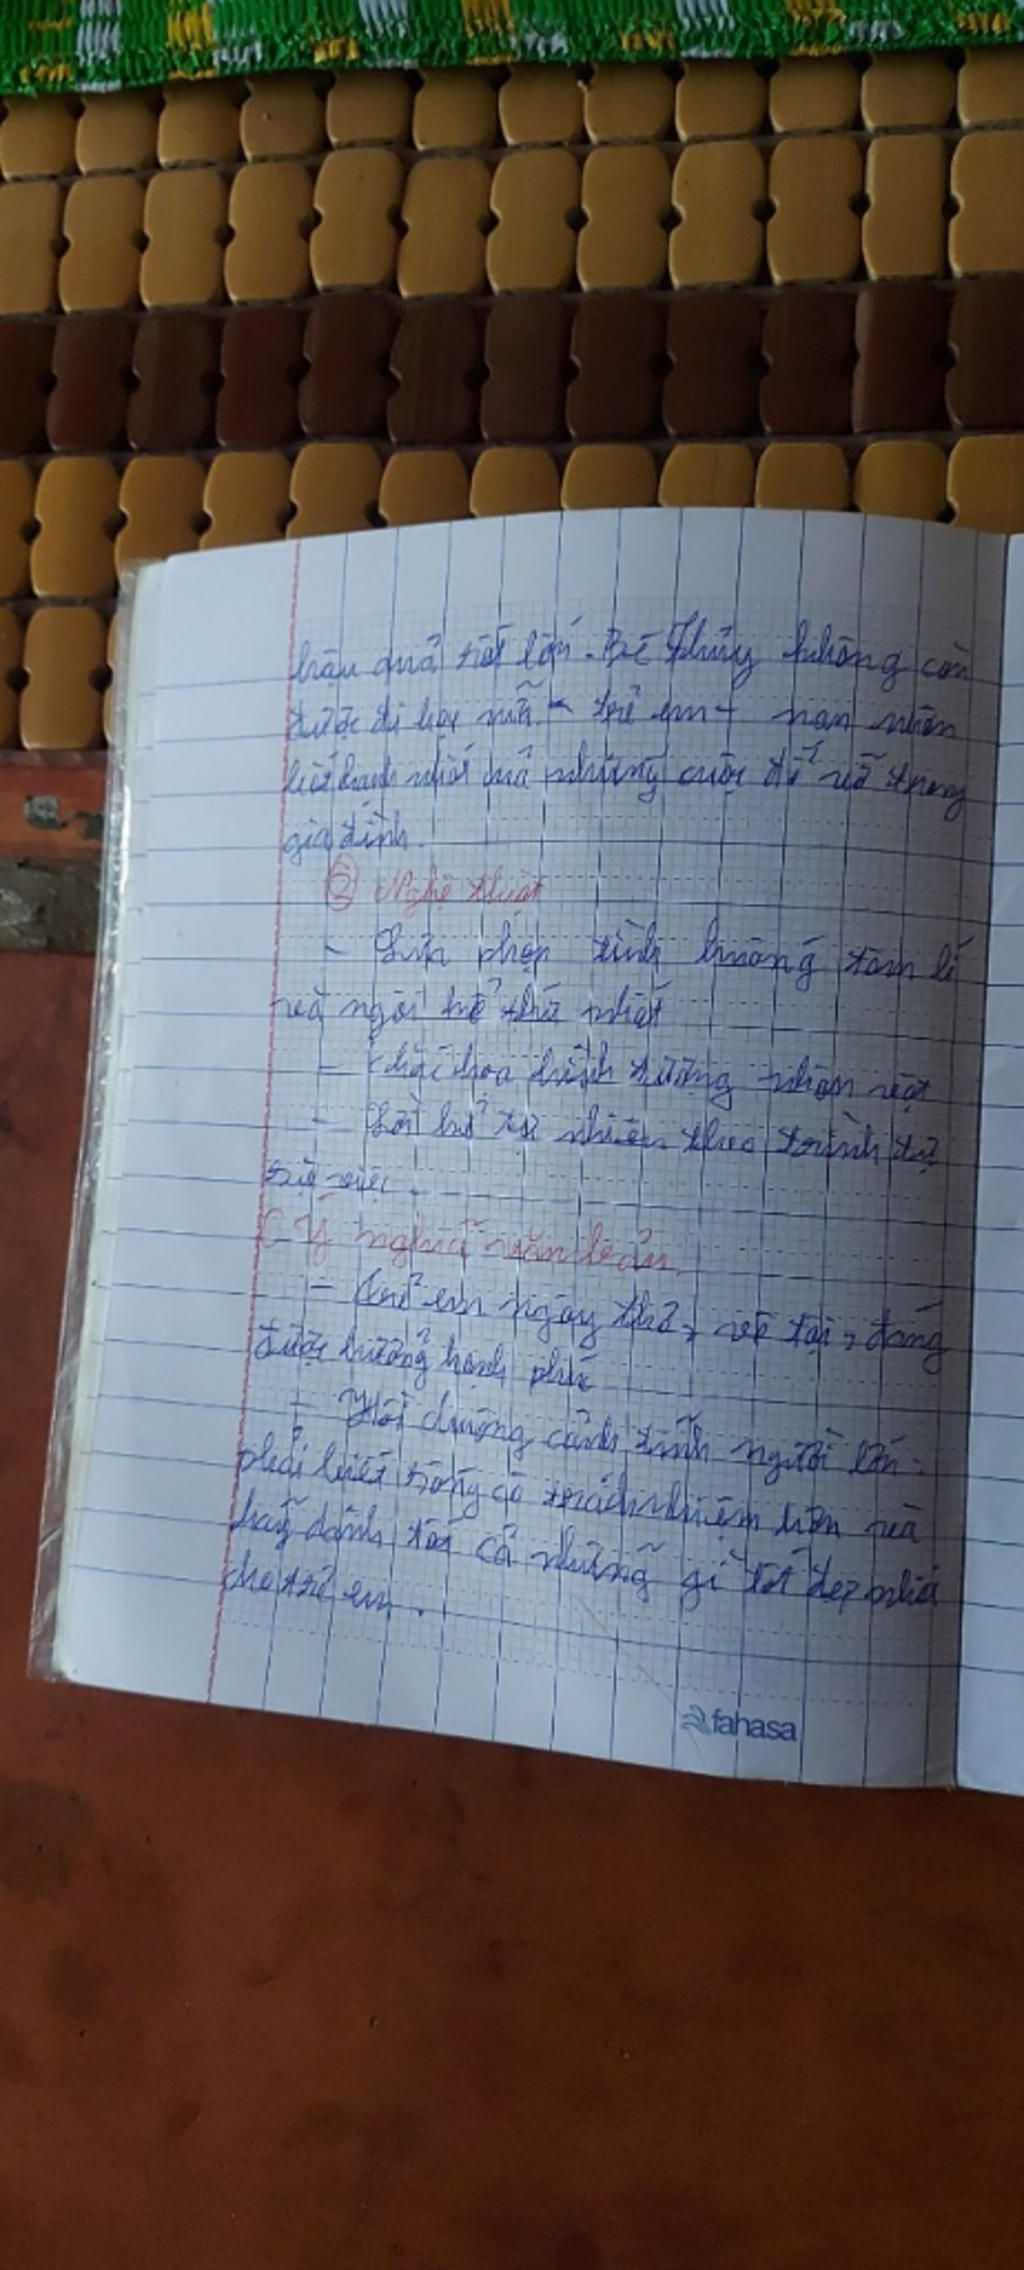 hậu quả rất lớn. Bé Thủy không còn
được đi học nữa - trẻ em - nạn nhân
bất hạnh nhất của những cuộc đổ vỡ trong
gia đình.
② Nghệ thuật
- tình huống tâm lí
và ngôi kể thứ nhất
- Khắc họa hình tượng nhân vật
- Lời kể tự nhiên theo trình tự
sự việc.
C Ý nghĩa văn bản.
- Trẻ em ngây thơ, vô tội, đáng
được hưởng hạnh phúc
- chuông cảnh tỉnh người lớn:
phải biết sống có trách nhiệm hơn và
hãy dành tất cả những gì tốt đẹp nhất
cho trẻ em.
fahasa